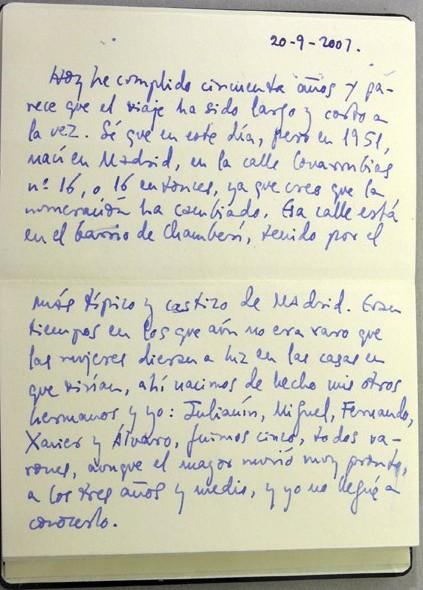 20-9-2001.
Hoy he cumplido cincuenta años y pa-
rece que el viaje ha sido largo y corto a
la vez. Sé que en este día, pero en 1951,
nací en Madrid, en la calle Covarrubias
nº 16, o 16 entonces, ya que creo que la
numeración ha cambiado. Esa calle está
en el barrio de Chamberí, tenido por el
más típico y castizo de Madrid. Eran
tiempos en los que aún no era raro que
las mujeres dieran a luz en las casas en
que vivían, ahí nacimos de hecho mis otros
hermanos y yo: Julianín, Miguel, Fernando,
Xavier y Álvaro, fuimos cinco, todos va-
rones, aunque el mayor murió muy pronto,
a los tres años y medio, y yo no llegué a
conocerlo.